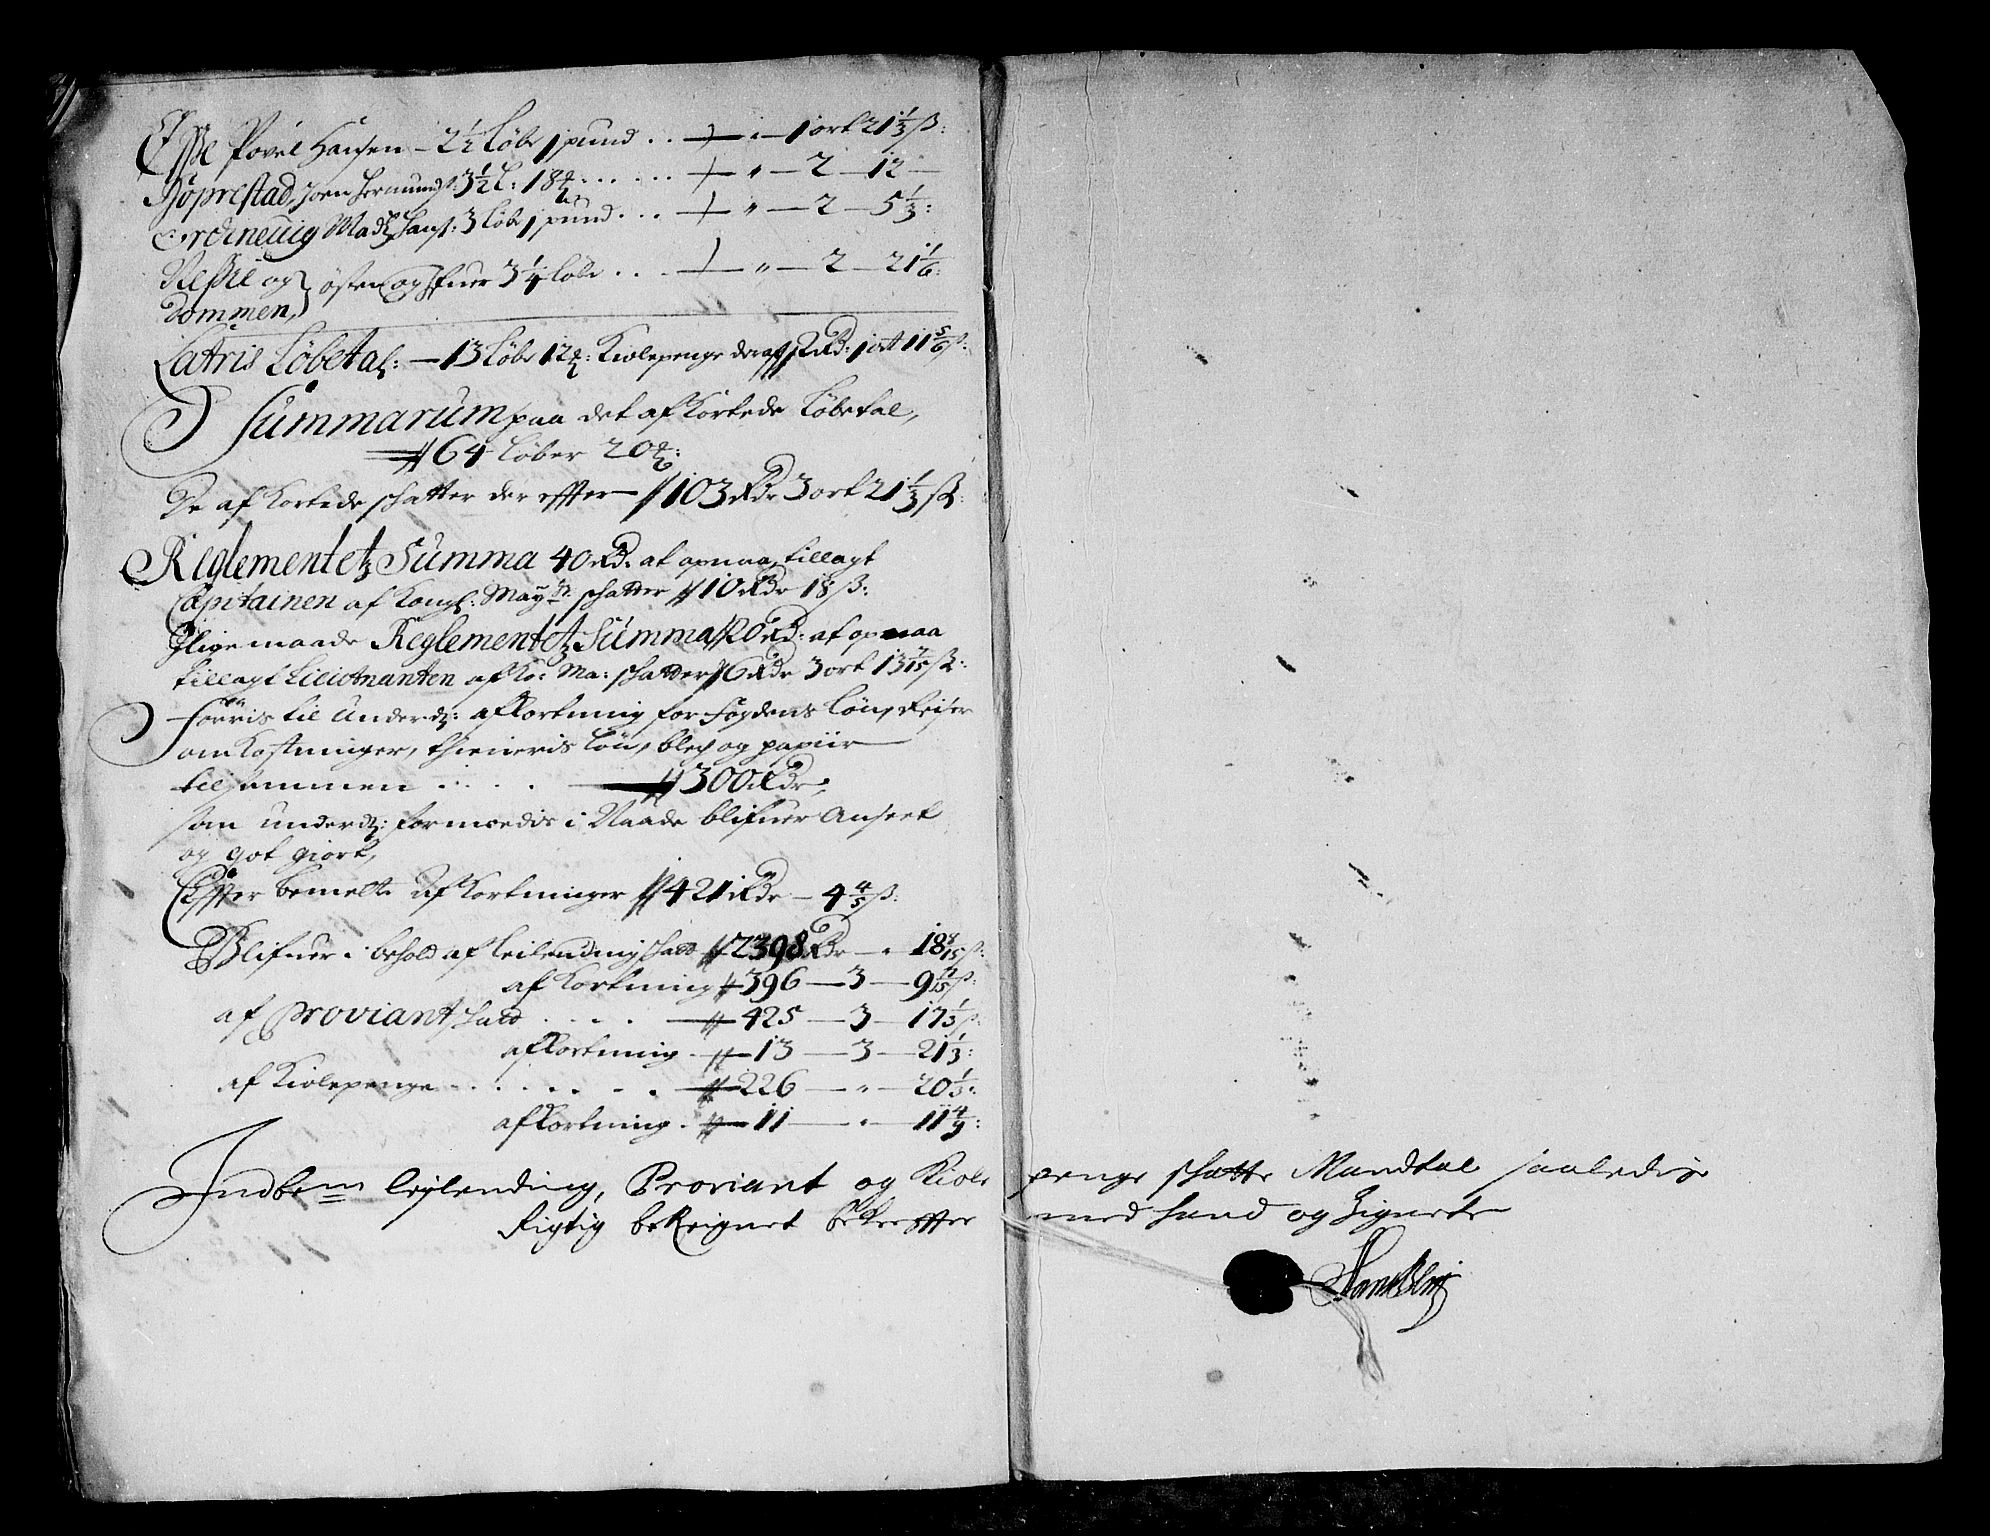 Esse Povel Hansen – 2½ Løbe 1 pund . . – " – 1 ort 21⅓ ß:
Høprestad, Joen Hermunds: 3½ L: 18 . . . – " – 2 – 12 –
Ordineuig Madz Hans: 3 Løbe 1 pund . . . – " – 2 – 5⅓:
og østen og 3¼ Løbe . . . – " – 2 – 21⅙:
Dommen,
Latris Løbetal: – 13 Løbe 12: Kiolepenge der af 2 Rd: 1 ort 11⅚ ß:
Summarum paa det af Kortede Løbetal,
64 Løber 20:
De af Kortede schatter der effter – 103 Rdr 3 ort 21⅓ ß:
Reglementetz Summa 40 Rd: at opnaa, tillagt
Capitainen af Kongl: May: schatter 10 Rdr 18 ß:
Ligemaade Reglementetz Summa 20 Rd: at opnaa
tillagt Leiotnanten af Ko: Ma: schatter 6 Rdr 3 ort 13 ß:
Føris til Underd: afKortning for Fogdens Løn, Reiser
omKostninger, thieneris Løn, blech og papiir
tilsammen . . . . 300 Rdr;
som underd: formoedis i Naade blifuer Anseet
og got giort,
Effter bemelte afKortninger 421 Rdr – 4⅘ ß:
Blifuer i behold af Leilending schatt 2398 Rdr – " 18 8/15 ß:
afKortning 396 – 3 – 9 ß:
af Proviant schatt . . . . 425 – 3 – 17⅓ ß:
afKortning . 13 – 3 – 21⅓:
af Kiolepenge . . . . . . 226 – " – 20⅓:
afKortning . 11 – " – 11 4/9:
Indbem leylending, Proviant og Kiole penge schatte Mandtal saaledis
Rigtig beReignet bekreffter med haand og Signete